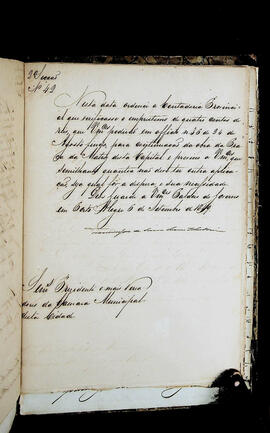 2ª Secção
Nº 42
Nesta data ordenei a Contadoria Provincial
que a o emprestimo de quatro contos de
reis, que Vmces. pedirão em officio n. 56 de 24 de
Agosto para continuação da obra da
da Matriz desta Capital e previno a Vmces. que
semelhante quantia não deve ter outra applica-
ção, seja qual for a despeza, e sua necessidade.
Deos Guarde a Vmces. Palacio do Governo
em Porto Alegre 5 de Setembro de
Senr. Presidente e mais Verea-
dores da Camara Municipal
desta Cidade